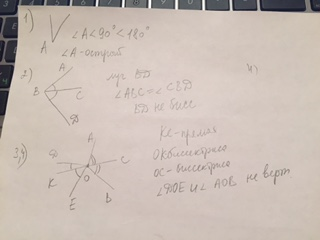 1)
∠A<90°<180°
A
∠A-острой
2)
A
B
C
D
луч BD
∠ABC=∠CBD
BD не бисс
4)
3,4)
A
D
C
K
O
E
B
KC-прямая
OK биссектриса
OC-биссектриса
∠DOE и ∠AOB не верт